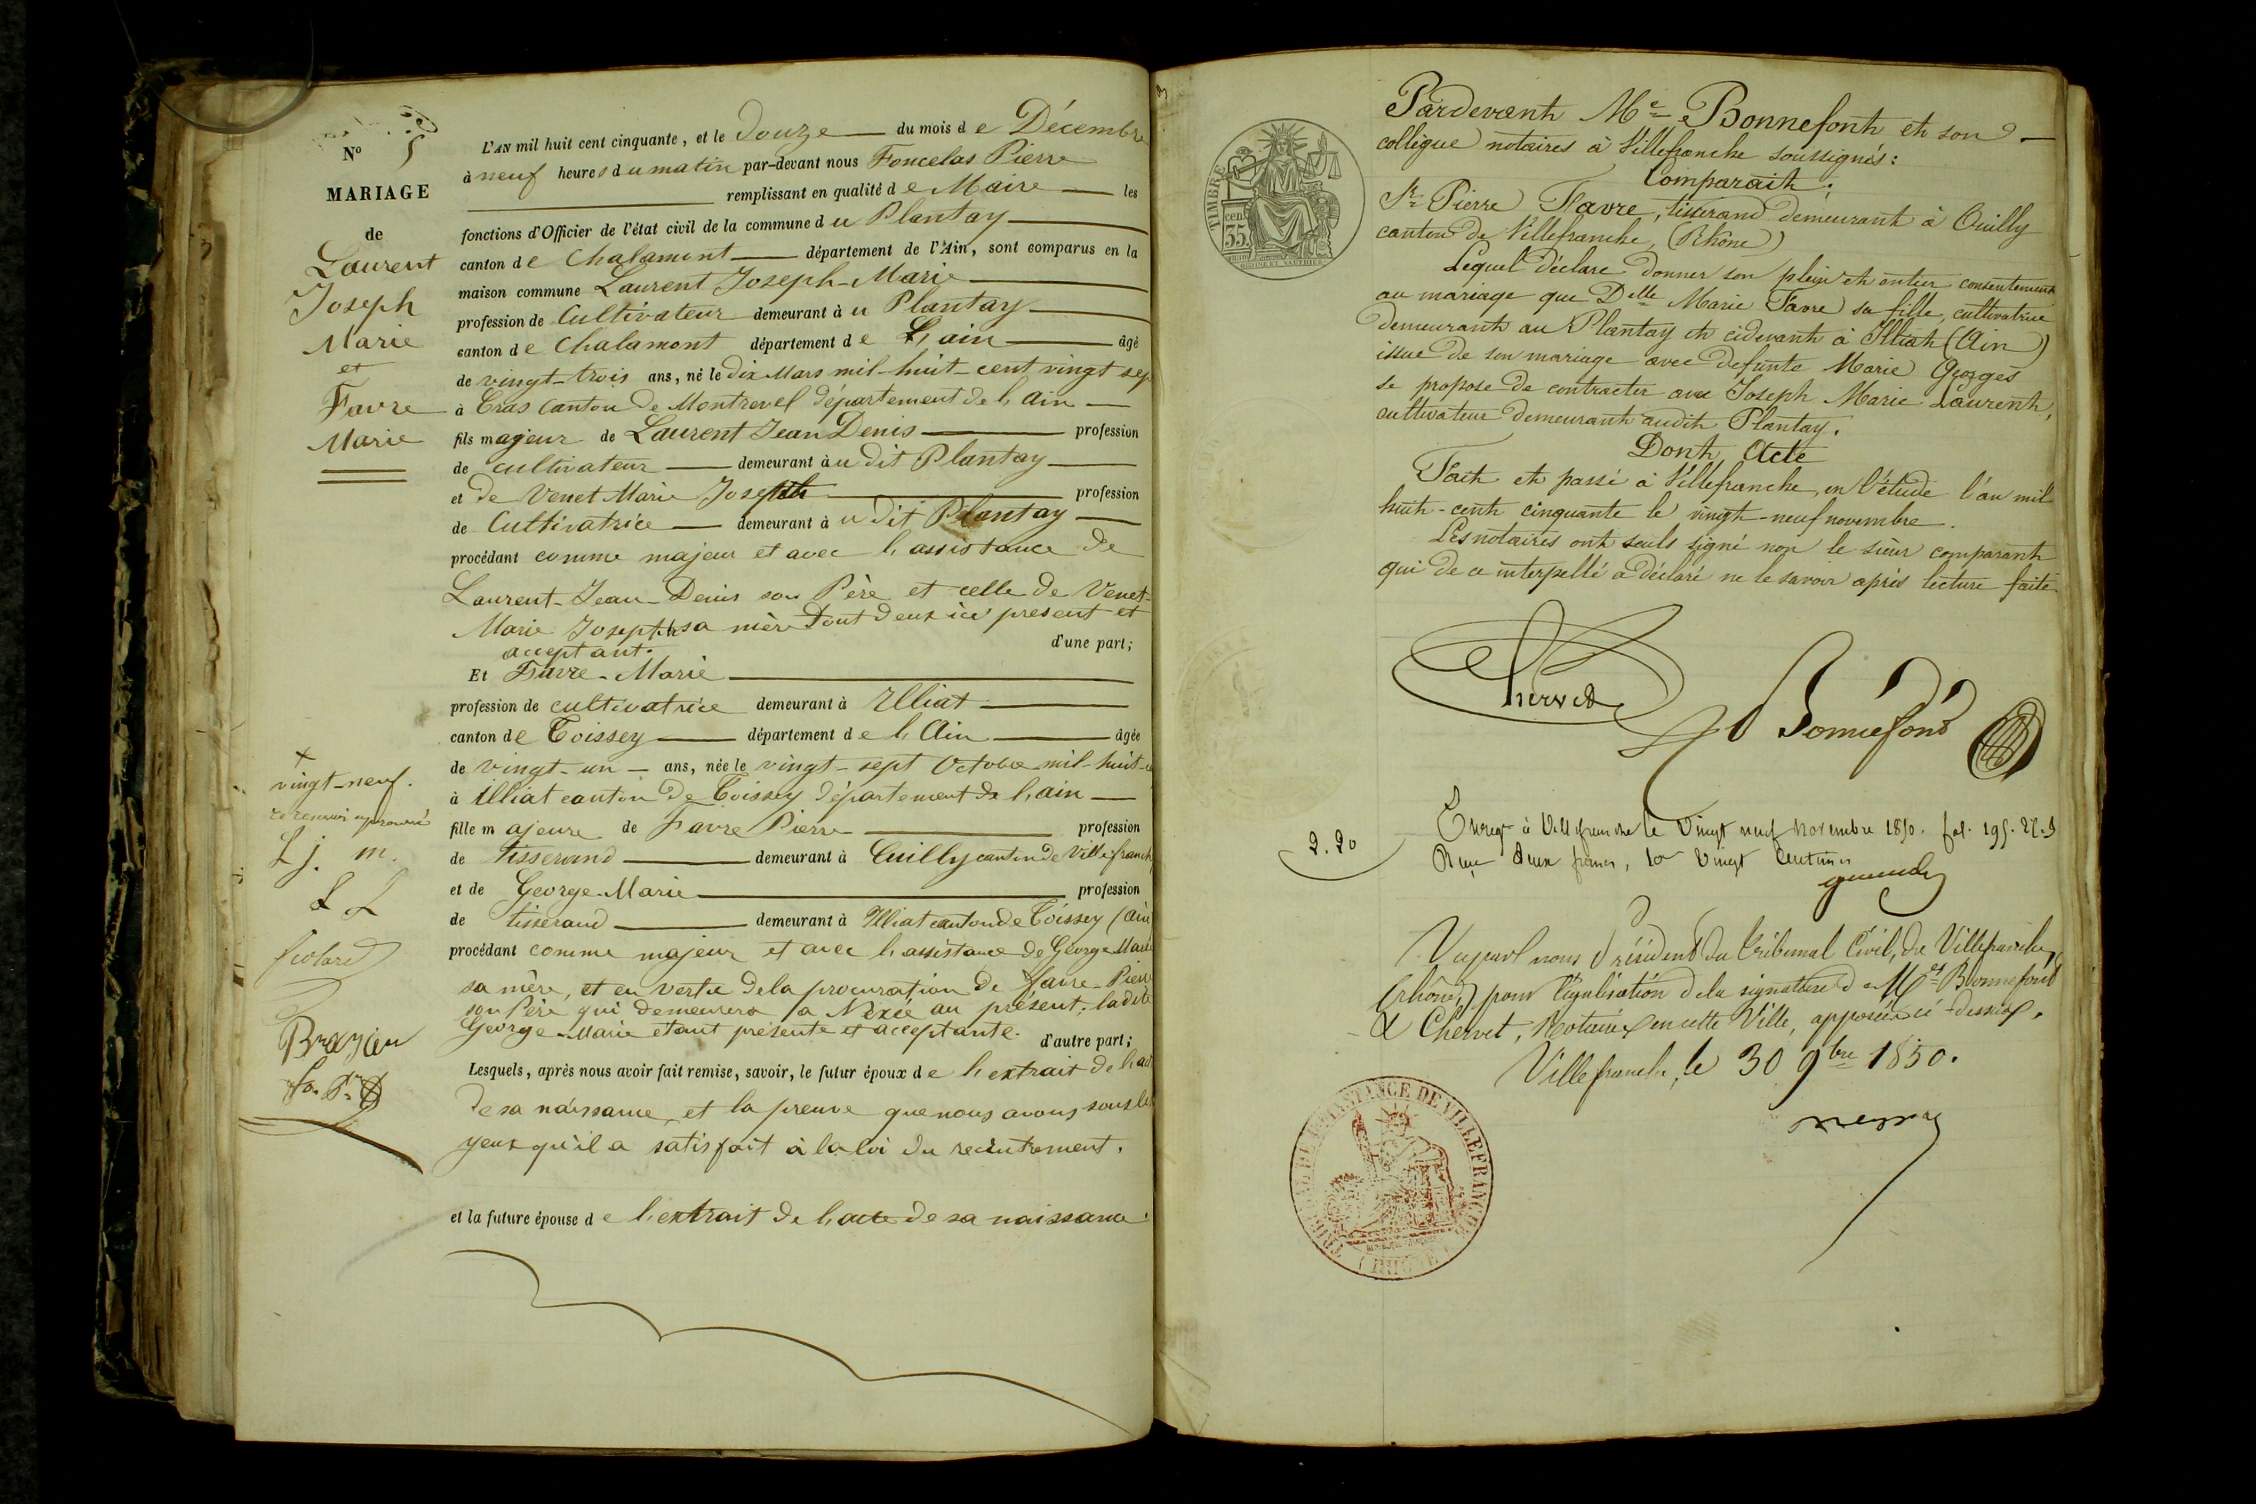 Nº 5
MARIAGE
de
Laurent
Joseph
Marie
et
Favre
Marie
L'AN mil huit cent cinquante, et le douze du mois de Décembre
à neuf heures du matin par-devant nous Foncelas Pierre
remplissant en qualité de Maire les
fonctions d'Officier de l'état civil de la commune du Plantay
canton de Chalamont département de l'Ain, sont comparus en la
maison commune Laurent Joseph-Marie
profession de Cultivateur demeurant à u Plantay
canton de Chalamont département de L'ain âgé
de vingt-trois ans, né le dix Mars mil-huit-cent vingt sep
à Cras canton de Montrevel département de l'Ain
fils majeur de Laurent Jean Denis profession
de cultivateur demeurant à u dit Plantay
et de Venet Marie Joseph profession
de Cultivatrice demeurant à u dit Plantay
procédant comme majeur et avec l'assistance de
Laurent-Jean-Denis son Père et celle de Venet-
Marie Joseph sa mère tout deux ici présent et
acceptant. d'une part;
Et Favre-Marie
profession de cultivatrice demeurant à Illiat
canton de Toissey département de l'Ain âgée
de vingt-un ans, née le vingt-sept Octobre mil-huit-c
à illiat canton de Toissey département de l'ain
fille majeure de Favre Pierre profession
de tisserand demeurant à Cuilly canton de Villefranch
et de George-Marie profession
de tisserand demeurant à Illiat canton de Toissey (Ain
procédant comme majeur et avec l'assistance de George Marie
sa mère, et en vertu de la procuration de favre-Pierre
son Père qui demeurera a Nexée au présent, la dite
George-Marie etant présente et acceptante. d'autre part;
Lesquels, après nous avoir fait remise, savoir, le futur époux de l'extrait de l'act
de sa naissance et la preuve que nous avons sous les
yeux qu'il a satisfait à la loi du recrutement.
et la future épouse de l'extrait de l'acte de sa naissance.
vingt-neuf.
L j. m.
L L
Brazier
TIMBRE
cen
35
Pardevant Me Bonnefont et son
collègue notaires à Villefranche soussignés:
Comparait:
Sr Pierre Favre, tisserand demeurant à Ouilly
canton de Villefranche (Rhône)
Lequel déclare donner son plein et entier consentement
au mariage que Delle Marie Favre sa fille, cultivatrice
demeurant au Plantay et cidevant à Illiat (Ain)
issue de son mariage avec defunte Marie Georges
se propose de contracter avec Joseph Marie Laurent,
cultivateur demeurant audit Plantay.
Dont Acte
Fait et passé à Villefranche, en l'étude l'an mil
huit-cent cinquante le vingt-neuf novembre.
Les notaires ont seuls signé non le sieur comparant
qui de ce interpellé a déclaré ne le savoir après lecture faite
Chervet
Bonnefond
2.20
Enregé à Villefranche le Vingt neuf Novembre 1850. fol. 195.
Reçu deux francs, 10e Vingt Centimes
Vu par nous Président du Tribunal Civil, de Villefranche,
(rhône) pour légalisation de la signature de Mes Bonnefond
& Chervet, Notaires en cette Ville, apposée ci-dessus.
Villefranche, le 30 9bre 1850.
TRIBUNAL DE 1re INSTANCE DE VILLEFRANCHE
(RHÔNE)